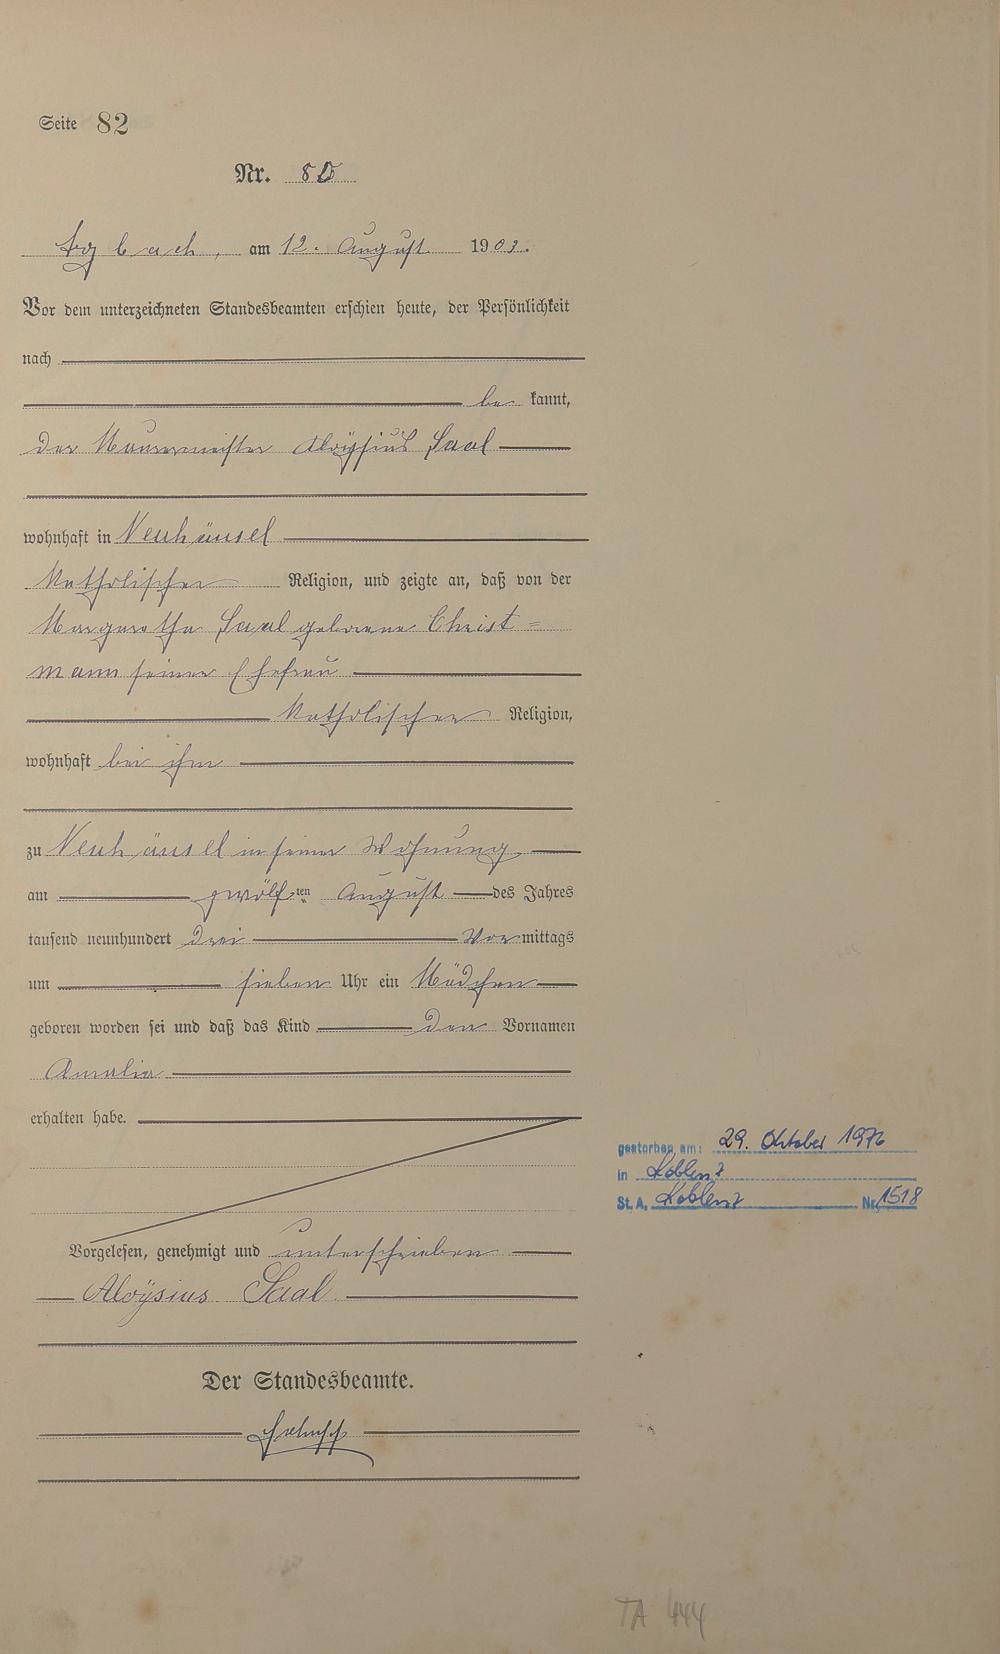 Seite 82
Nr. 80
am 12. August 1903.
Vor dem unterzeichneten Standesbeamten erschien heute, der Persönlichkeit
nach
be kannt,
der Maurermeister Aloÿsius Saal
wohnhaft in Neuhäusel
katholischer Religion, und zeigte an, daß von der
Margaretha Saal geborene Christ=
mann seiner Ehefrau
katholischer Religion,
wohnhaft bei ihm
zu Neuhäusel in seiner Wohnung
am zwölften August des Jahres
tausend neunhundert drei Vormittags
um sieben Uhr ein Mädchen
geboren worden sei und daß das Kind den Vornamen
Amalia
erhalten habe.
Vorgelesen, genehmigt und unterschrieben
Aloÿsius Saal
Der Standesbeamte.
gestorben am: 29. Oktober 1976
in Koblenz
St. A. Koblenz Nr. 1518
TA 444